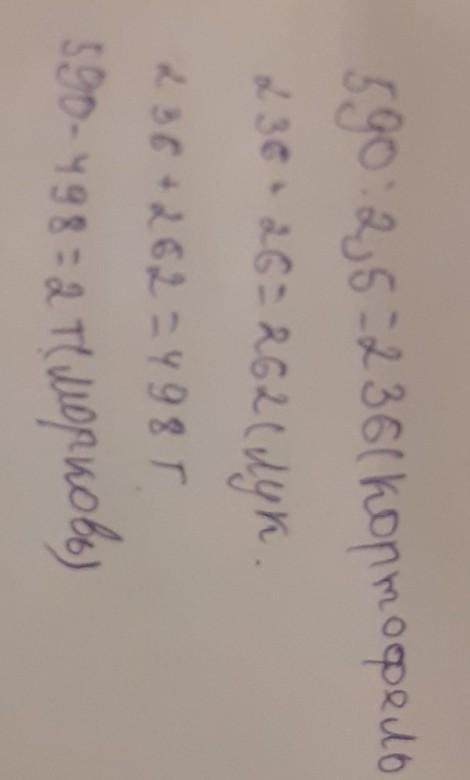 590 : 2,5 = 236 (картофель
236 + 26 = 262 (лук.
236 + 262 = 498 г
590 - 498 = 2 т (морковь)